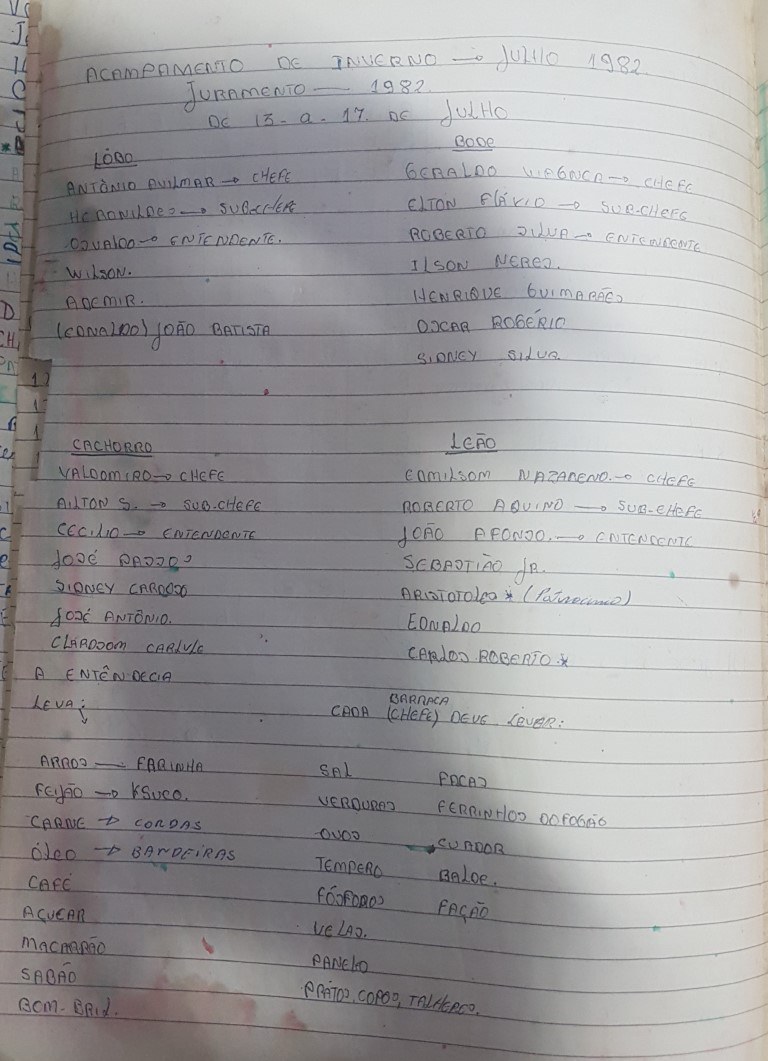 ACAMPAMENTO DE INVERNO → JULHO 1982.
JURAMENTO — 1982.
DE 13-a-17. DE JULHO
LÔBO
ANTÔNIO AVILMAR → CHEFE
HERONILDES → SUB-CHEFE
OSVALDO → ENTENDENTE.
WILSON.
ADEMIR.
(EDNALDO) JOÃO BATISTA
BODE
GERALDO WAGNER → CHEFE
ELTON FLÁVIO → SUB-CHEFE
ROBERTO SILVA → ENTENDENTE
ILSON NERES.
HENRIQUE GUIMARÃES
OSCAR ROGÉRIO
SIDNEY SILVA
CACHORRO
VALDOMIRO → CHEFE
AILTON S. → SUB-CHEFE
CECILIO → ENTENDENTE
JOSÉ PASSOS
SIDNEY CARDOSO
JOSÉ ANTÔNIO.
CLARDSOM CARLYLE
LEÃO
EDMILSOM NAZARENO → CHEFE
ROBERTO AQUINO → SUB-CHEFE
JOÃO AFONSO. → ENTENDENTE
SEBASTIÃO JR.
ARISTOTOLES * (Paturecimo)
EDNALDO
CARLOS ROBERTO. *
A ENTÊNDECIA
LEVA:
BARRACA
CADA (CHEFE) DEVE LEVAR:
ARROS — FARINHA
FEIJÃO → KSUCO.
CARNE → CORDAS
ÓLEO → BANDEIRAS
CAFÉ
AÇUCAR
MACARRÃO
SABÃO
BOM-BRIL.
SAL
VERDURAS
OVOS
TEMPERO
FÓSFOROS
VELAS.
PANELO
PRÁTOS, COPOS, TALHERES.
FACAS
FERRINHOS DO FOGÃO
CUADOR
BALDE.
FAÇÃO